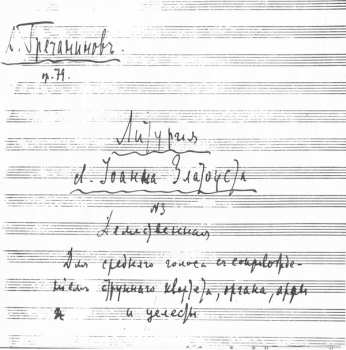 А. Гречаниновъ.
op. 79.
Литургия
св. Иоанна Златоуста
№ 3
Демественная
Для среднего голоса съ сопровожде-
нiемъ струннаго квартета, органа, арфы
и челесты